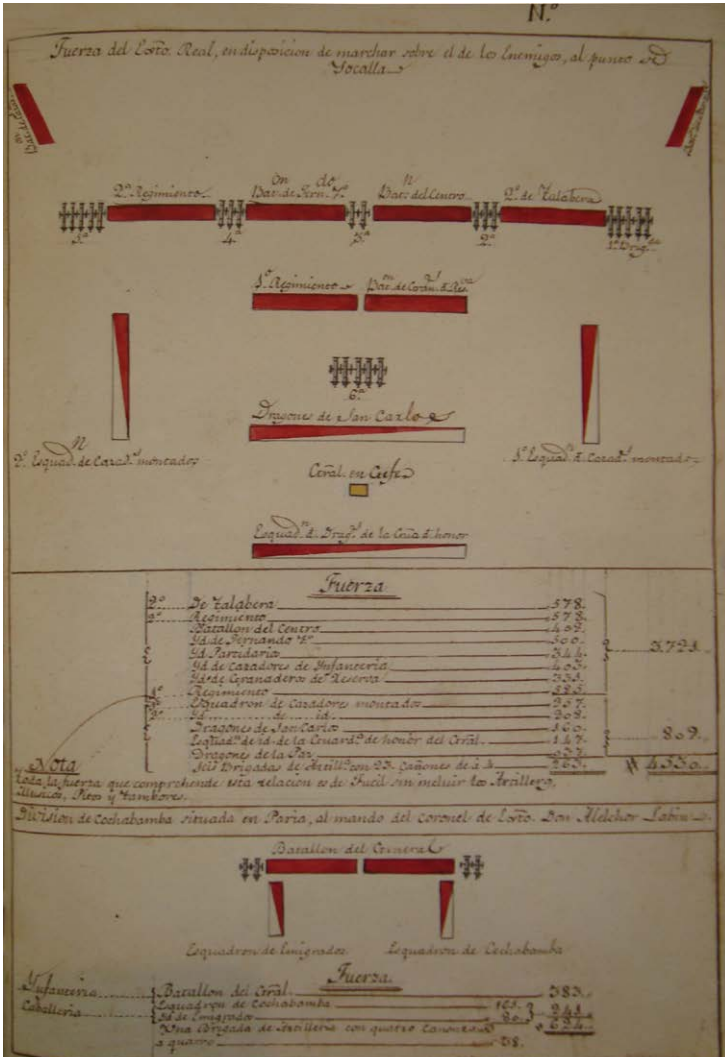 N.º
Fuerza del Exto. Real, en disposicion de marchar sobre el de los Enemigos, al punto de
Yocalla
2.º Regimiento
Bat.on de Fern.do 7.º
Bat.n del Centro
2.º de Talabera
5.ª
4.ª
3.ª
2.ª
1.ª Brig.da
1.º Regimiento
Bat.on de Gran.s d. Res.va
6.ª
Dragones de San Carlos
2.º Esquad.n de Cazad.s montados
1.º Esquad.n d. Cazad.s montados
Gral. en Gefe
Esquad.n d. Drag.s de la Gua d. honor
Fuerza
2.º De Talabera 578.
2.º Regimiento 578.
Batallon del Centro 409.
Yd. de Fernando 7.º 500.
Yd. Partidario 344.
Yd. de Cazadores de Ynfanteria 403.
Yd. de Granaderos de Reserva
1.º Regimiento
3721.
Esquadron de Cazadores montados
Yd. de id.
Dragones de San Carlos 160.
Esquad.n de id. de la Guard.a de honor del Gral. 147.
Dragones de la
809.
Seis Brigadas de Artill.a con 23. Cañones de á 4. 263.
4530.
Nota
Toda la fuerza que comprehende esta relacion es de Fucil sin incluir los Artillero,
Musicos, Pitos y Tambores.
Division de Cochabamba situada en Paria, al mando del Coronel de Exto. Don Melchor
Batallon del General
Esquadron de Emigrados
Esquadron de Cochabamba
Fuerza
Ynfanteria Batallon del Gral. 383.
Caballeria Esquadron de Cochabamba
Yd. de Emigrados
Una Brigada de Artilleria con quatro Canones
a quatro 38.